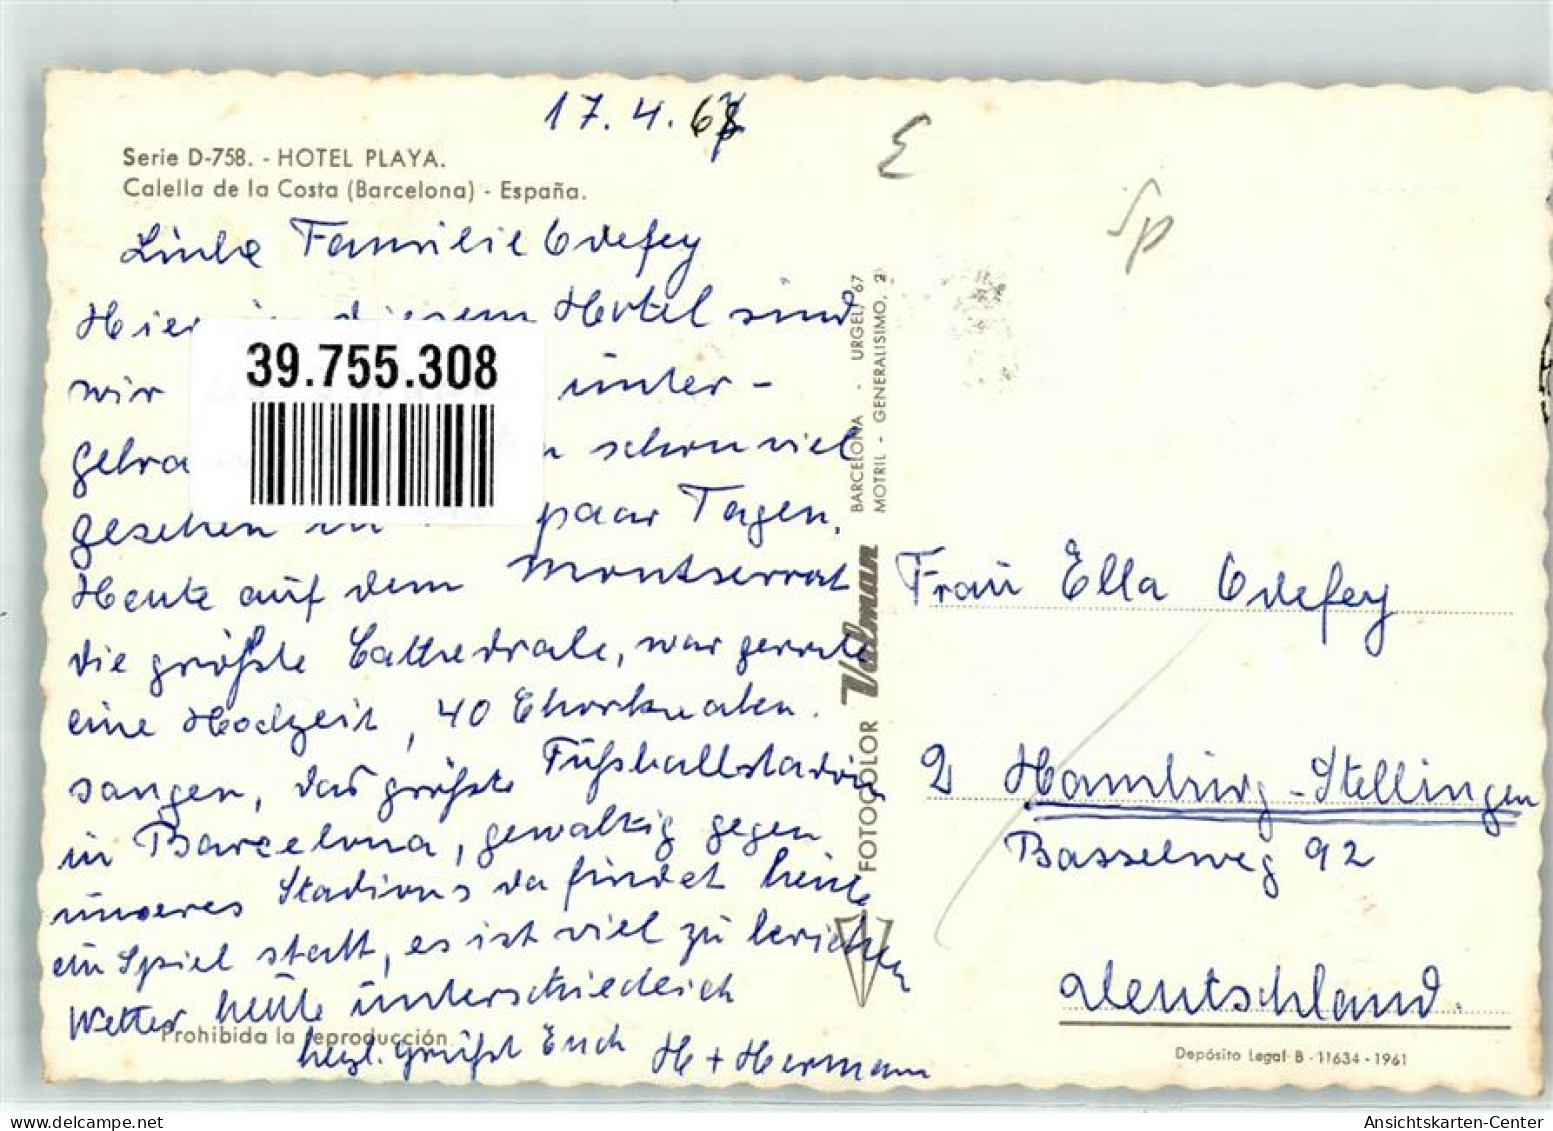 17.4.68
E
Sp
Serie D-758. - HOTEL PLAYA.
Calella de la Costa (Barcelona) - España.
Liebe Familie Odefey
Hier in diesem Hotel sind
wir unter-
gebra schon viel
gesehen in paar Tagen.
Heute auf dem Montserrat
die größte Cathedrale, war gerade
eine Hochzeit, 40 Chorknaben.
sangen, das größte Fußballstadion
in Barcelona, gewaltig gegen
unseres Stadions da findet heute
ein Spiel statt, es ist viel zu berichten
Wetter heute unterschiedlich
herzl. grüßt Euch H + Hermann
Prohibida la reproducción
39.755.308
FOTOCOLOR Valman BARCELONA - URGEL, 67
MOTRIL - GENERALISIMO, 2
Frau Ella Odefey
2 Hamburg-Stellingen
Basselweg 92
Deutschland.
Depósito Legal B - 11634 - 1961
Ansichtskarten-Center